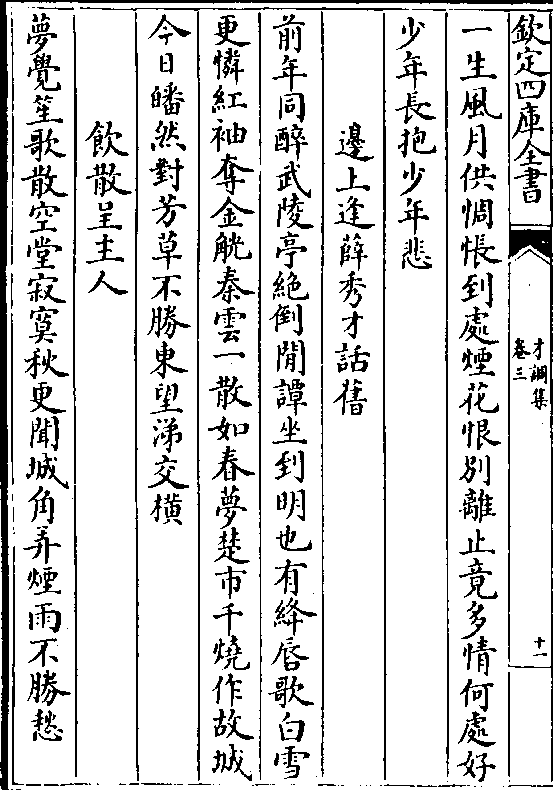 欽定四庫全書
才調集
卷三
十一
一生風月供惆悵到處煙花恨別離止竟多情何處好
少年長抱少年悲
邊上逢薛秀才話舊
前年同醉武陵亭絕倒閒譚坐到明也有絳唇歌白雪
更憐紅袖奪金觥秦雲一散如春夢楚市千燒作故城
今日皤然對芳草不勝東望涕交橫
飲散呈主人
夢覺笙歌散空堂寂寞秋更聞城角弄煙雨不勝愁